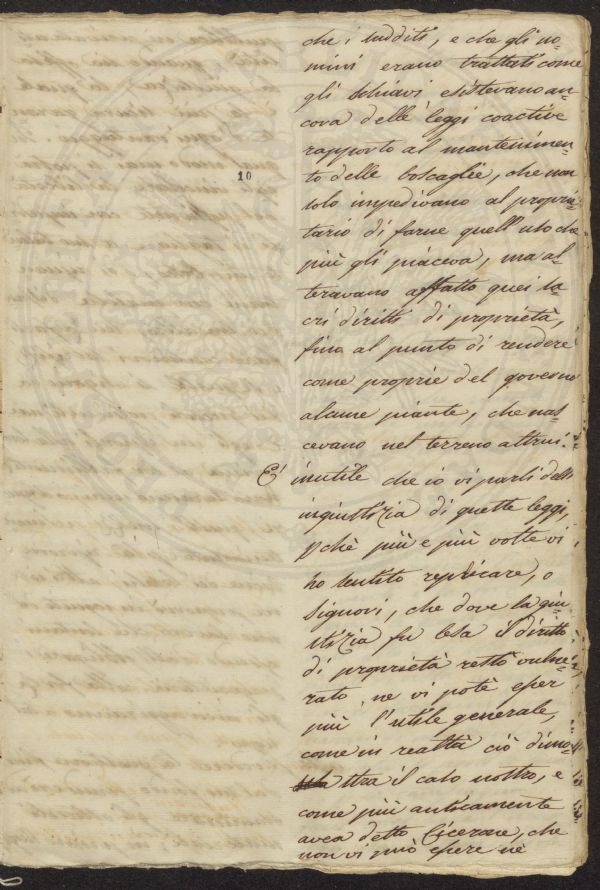 che i sudditi, e che gli uo-
mini erano trattati come
gli schiavi esistevano an-
cora delle leggi coactive
rapporto al mantenimen-
to delle boscaglie, che non
solo impedivano al proprie-
tario di farne quell'uso che
più gli piaceva, ma al-
teravano affatto quei sa-
cri diritti di proprietà,
fino al punto di rendere
come proprie del governo
alcune piante, che nas-
cevano nel terreno altrui.
E' inutile che io vi parli della
ingiustizia di queste leggi,
pchè più e più volte vi
ho sentito replicare, o
Signori, che dove la giu-
stizia fu lesa il diritto
di proprietà restò vulne-
rato, ne vi potè esser
più l'utile generale,
come in realtà ciò dimo-
stra il caso nostro, e
come più anticamente
avea detto Cicerone, che
non vi può essere nè
10